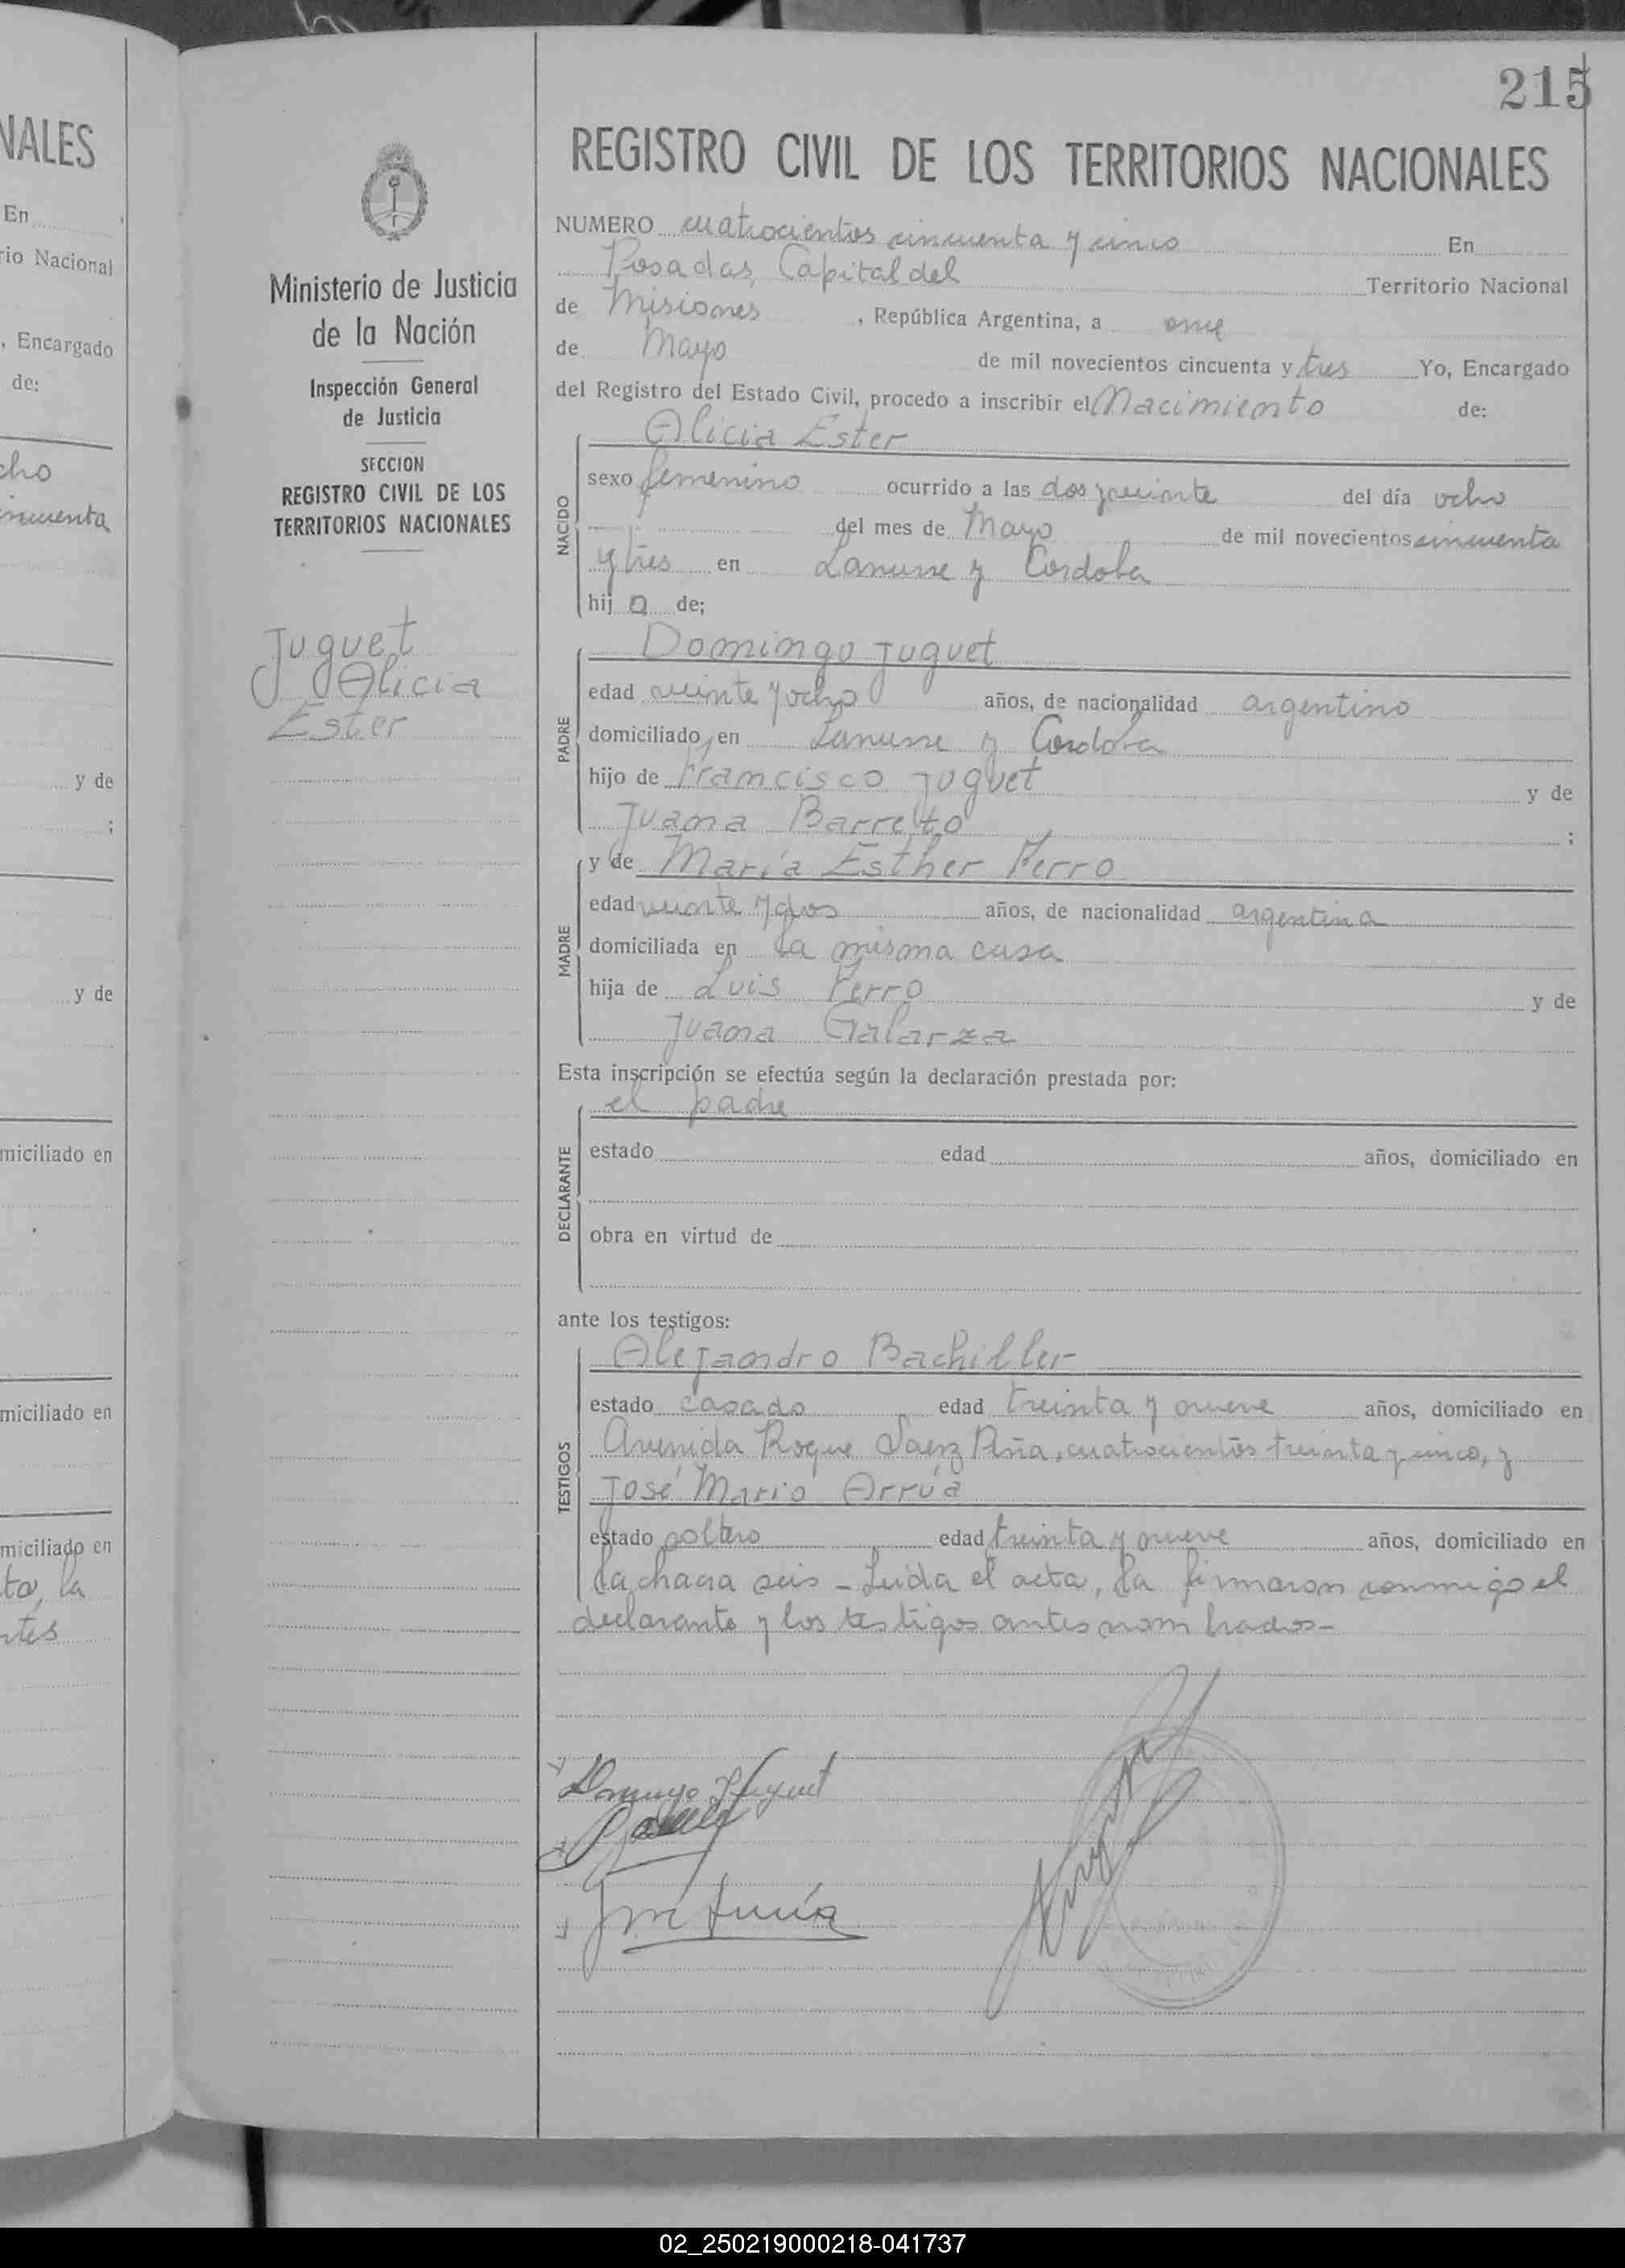 NALES
En
rio Nacional
, Encargado
de:
cho
incuenta
y de
;
y de
miciliado en
miciliado en
miciliado en
to, la
ntes
215
Ministerio de Justicia
de la Nación
Inspección General
de Justicia
SECCION
REGISTRO CIVIL DE LOS
TERRITORIOS NACIONALES
Juguet
Alicia
Ester
REGISTRO CIVIL DE LOS TERRITORIOS NACIONALES
NUMERO cuatrocientos cincuenta y cinco En
Posadas, Capital del Territorio Nacional
de Misiones , República Argentina, a once
de Mayo de mil novecientos cincuenta y tres Yo, Encargado
del Registro del Estado Civil, procedo a inscribir el Nacimiento de:
NACIDO
Alicia Ester
sexo femenino ocurrido a las dos y veinte del día ocho
del mes de Mayo de mil novecientos cincuenta
y tres en Lanusse y Cordoba
hij a de;
PADRE
Domingo Juguet
edad veinte y ocho años, de nacionalidad argentino
domiciliado en Lanusse y Cordoba
hijo de Francisco Juguet y de
Juana Barreto ;
MADRE
y de María Esther Ferro
edad veinte y dos años, de nacionalidad argentina
domiciliada en la misma casa
hija de Luis Ferro y de
Juana Galarza
Esta inscripción se efectúa según la declaración prestada por:
DECLARANTE
el padre
estado edad años, domiciliado en
obra en virtud de
ante los testigos:
TESTIGOS
Alejandro Bachiller
estado casado edad treinta y nueve años, domiciliado en
Avenida Roque Saenz Peña, cuatrocientos treinta y cinco, y
José Mario Arrúa
estado soltero edad treinta y nueve años, domiciliado en
la chacra seis - Leida el acta, la firmaron conmigo el
declarante y los testigos antes nombrados-
Domingo Juguet
José Arrúa
02_250219000218-041737